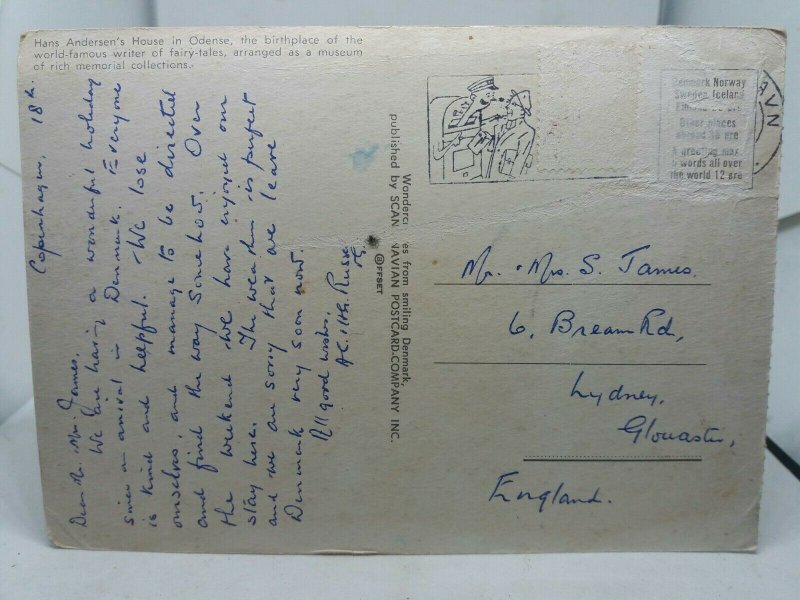 Hans Andersen's House in Odense, the birthplace of the
world-famous writer of fairy-tales, arranged as a museum
of rich memorial collections.
Copenhagen, 18th.
Dear Mr. Mrs. James,
We are having a wonderful holiday
since our arrival in Denmark. Everyone
is kind and helpful. We lose
ourselves, and manage to be directed
and find the way somehow. Over
the weekend we have enjoyed our
stay here. The weather is perfect
and we are sorry that we leave
Denmark very soon now.
All good wishes,
Wonder es from smiling Denmark,
published by SCAN NAVIAN POSTCARD-COMPANY INC.
Denmark Norway
Sweden Iceland
Other places
A greeting max.
5 words all over
the world 12 øre
VN
Mr. Mrs. S. James.
6, Bream Rd,
Lydney,
Gloucester,
England.